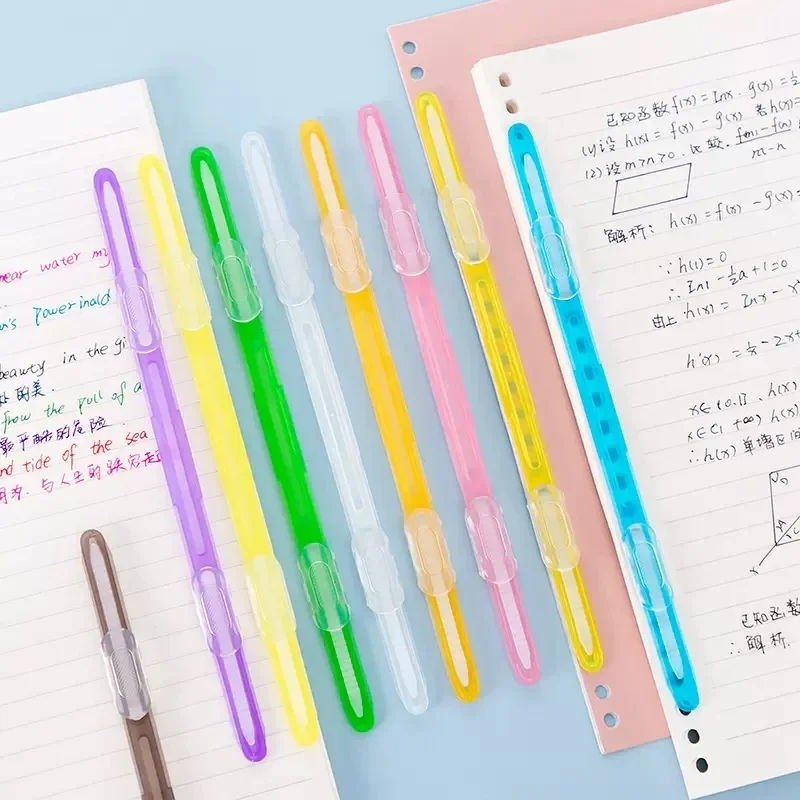 near water my
n's Powerinald
beauty in the gi
处的美.
from the pull of a
最平酷的危险.
nd tide of the sea
已知函数 f(x) = lnx. g(x) = ½
(1) 设 h(x) = f(x) - g(x) 若 h(x) =
(2) 设 m>n>0. 比较. f(m) - f(n) / m-n
解析: h(x) = f(x) - g(x) =
∵ h(1) = 0
∴ ln1 - ½a + 1 = 0
由上 h(x) = lnx - x
h'(x) = ½ - 2x
x∈(0.1). h(x)
x∈(1 +∞) h(x)
∴ h(x) 单增区间
x
已知函数
∴ 解析.